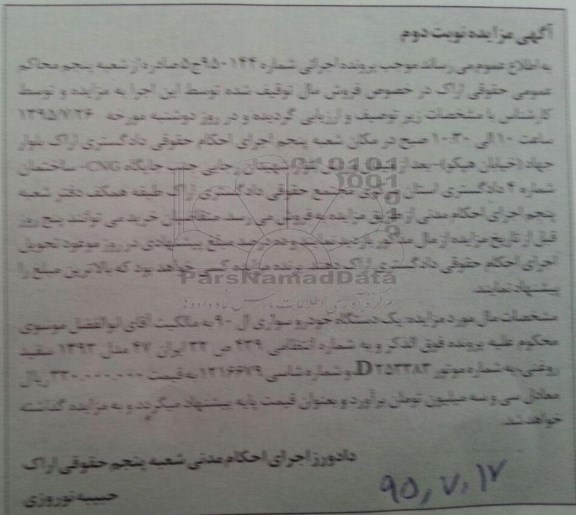 آگهی مزایده نوبت دوم
به اطلاع عموم می رساند بموجب پرونده اجرائی شماره ۹۵۰۱۴۴ج۵ صادره از شعبه پنجم محاکم
عمومی حقوقی اراک در خصوص فروش مال توقیف شده توسط این اجرا به مزایده و توسط
کارشناس با مشخصات زیر توصیف و ارزیابی گردیده و در روز دوشنبه مورخه ۱۳۹۵/۷/۲۶
ساعت ۱۰ الی ۱۰:۳۰ صبح در مکان شعبه پنجم اجرای احکام حقوقی دادگستری اراک بلوار
جهاد (خیابان هپکو)- بعد از بلوار شهیدان رجایی جنب جایگاه CNG- ساختمان
شماره ۴ دادگستری استان مجتمع حقوقی دادگستری اراک طبقه همکف دفتر شعبه
پنجم اجرای احکام مدنی از طریق مزایده به فروش می رسد. متقاضیان خرید می توانند پنج روز
قبل از تاریخ مزایده از مال مذکور بازدید نمایند و ده درصد مبلغ پیشنهادی در روز موعود تحویل
اجرای احکام حقوقی دادگستری اراک دهند. برنده مزایده کسی خواهد بود که بالاترین مبلغ را
پیشنهاد نمایند.
ParsNamadData
مشخصات مال مورد مزایده: یک دستگاه خودرو سواری ال ۹۰ به مالکیت آقای ابوالفضل موسوی
محکوم علیه پرونده فوق الذکر و به شماره انتظامی ۴۳۹ ص ۳۲ ایران ۴۷ مدل ۱۳۹۳ سفید
روغنی به شماره موتور D۲۵۳۳۸۳ و شماره شاسی ۱۳۱۶۶۷۹ به قیمت ۳۳۰,۰۰۰,۰۰۰ ریال
معادل سی و سه میلیون تومان برآورد و بعنوان قیمت پایه پیشنهاد میگردد و به مزایده گذاشته
خواهد شد.
دادورز اجرای احکام مدنی شعبه پنجم حقوقی اراک
حبیبه نوروزی
۹۵,۷,۱۷